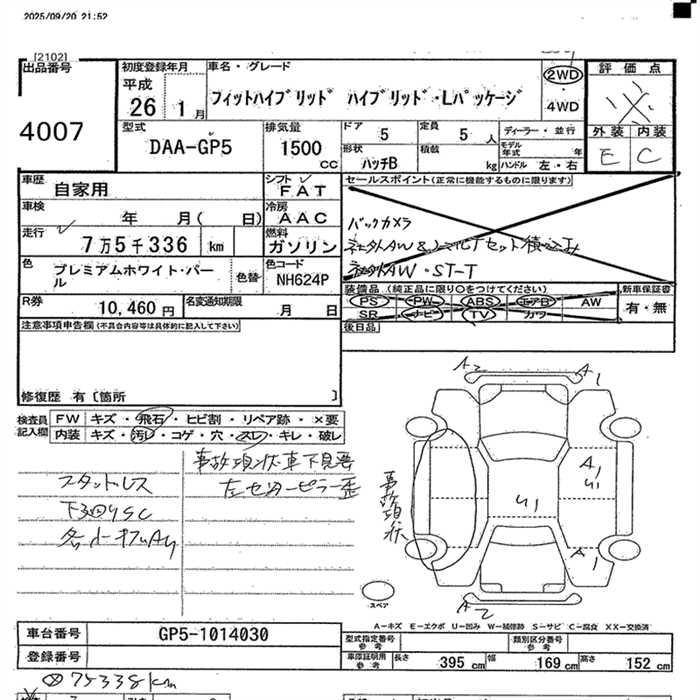 2025/09/20 21:52
[2102]
出品番号
4007
初度登録年月
平成
26 1 月
車名・グレード
フィットハイブリッド ハイブリッド・Lパッケージ
2WD
・
4WD
評価点
外装 内装
E C
型式
DAA-GP5
排気量
1500
cc
ドア
5
定員
5 人
形状
ハッチB
積載
kg
ディーラー・並行
モデル
年式 年
ハンドル 左・右
車歴
自家用
シフト
FAT
車検
年 月( 日)
冷房
AAC
走行
7万5千336 km
燃料
ガソリン
色
プレミアムホワイト・パール
色替
色コード
NH624P
R券
10,460 円
名変通知期限
月 日
セールスポイント(正常に機能するものに限ります)
バックカメラ
社外AW・ST-T
装備品(純正品に限り○をつけてください)
PS PW ABS エアB AW
SR ナビ TV カワ
新車保証書
有・無
後日品
注意事項申告欄(不具合内容等は具体的に記入して下さい)
修復歴 有〔箇所 〕
検査員
記入欄
FW キズ・飛石・ヒビ割・リペア跡・×要
内装 キズ・汚レ・コゲ・穴・スレ・キレ・破レ
スタットレス
事故現状車下見要
左センターピラー歪
事故現状
A2 A1
A1
U1
U1
A1
A2
スペア
A-キズ E-エクボ U-凹み W-補修跡 S-サビ C-腐食 XX-交換済
車台番号
GP5-1014030
登録番号
型式指定番号
参考
類別区分番号
参考
車庫証明用
参考
長さ 395 cm 幅 169 cm 高さ 152 cm
75338km